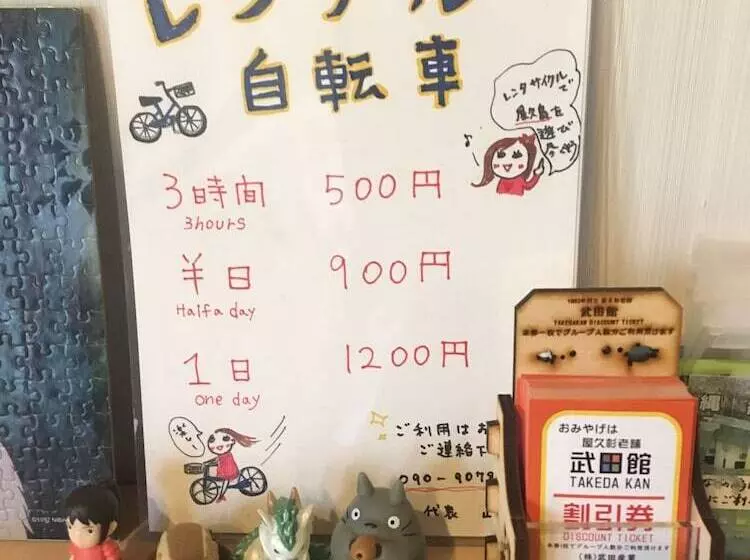 レンタル
自転車
レンタサイクルで
屋久島を
3時間 500円
3hours
半日 900円
Half a day
1日 1200円
one day
楽しー
ご利用はお
ご連絡下
090-9079
代表
武田館
TAKEDAKAN DISCOUNT TICKET
本券一枚でグループ人数分ご利用頂けます
おみやげは
屋久杉老舗
武田館
TAKEDA KAN
割引券
DISCOUNT TICKET
(株)武田産業